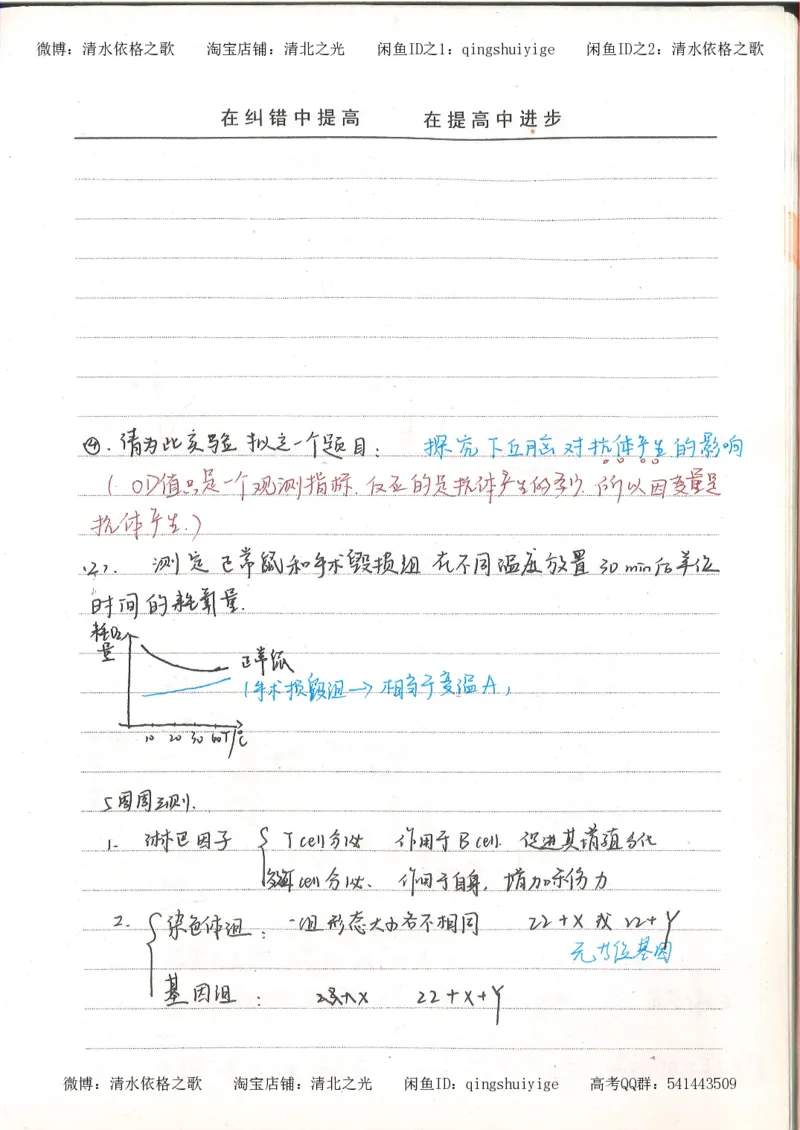 微博：清水依格之歌 淘宝店铺：清北之光 闲鱼ID之1：qingshuiyige 闲鱼ID之2：清水依格之歌
在纠错中提高 在提高中进步
④.请为此实验拟定一个题目： 探究下丘脑对抗体产生的影响
(OD值只是一个观测指标.反应的是抗体产生的多少.所以因变量是
抗体产生.)
(2). 测定正常鼠和手术毁损组在不同温度放置30min后单位
时间的耗氧量.
耗O₂
量
正常鼠
(手术损毁组→相当于变温A)
10 20 30 40 T/℃
5周周测.
1. 淋巴因子 { T cell分泌 作用于B cell. 促进其增殖分化
cell分泌. 作用于自身, 增加杀伤力
2. { 染色体组： 一组形态大小各不相同 22+X或22+Y
无等位基因
基因组： 22+X+Y
微博：清水依格之歌 淘宝店铺：清北之光 闲鱼ID：qingshuiyige 高考QQ群：541443509